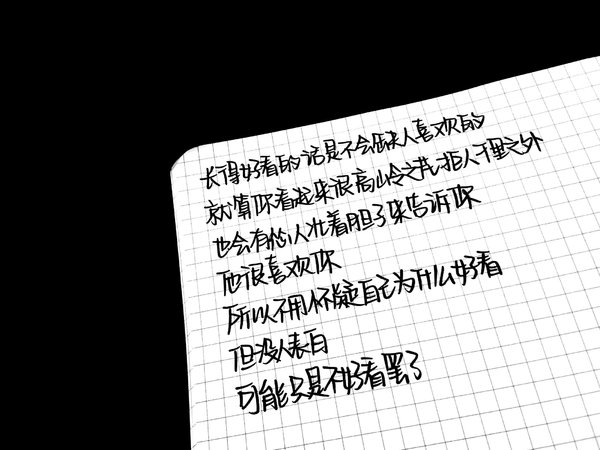 长得好看的话是不会缺人喜欢的
就算你看起来很高岭之花拒人千里之外
也会有怂人壮着胆子来告诉你
他很喜欢你
所以不用怀疑自己为什么好看
但没人表白
可能只是不好看罢了